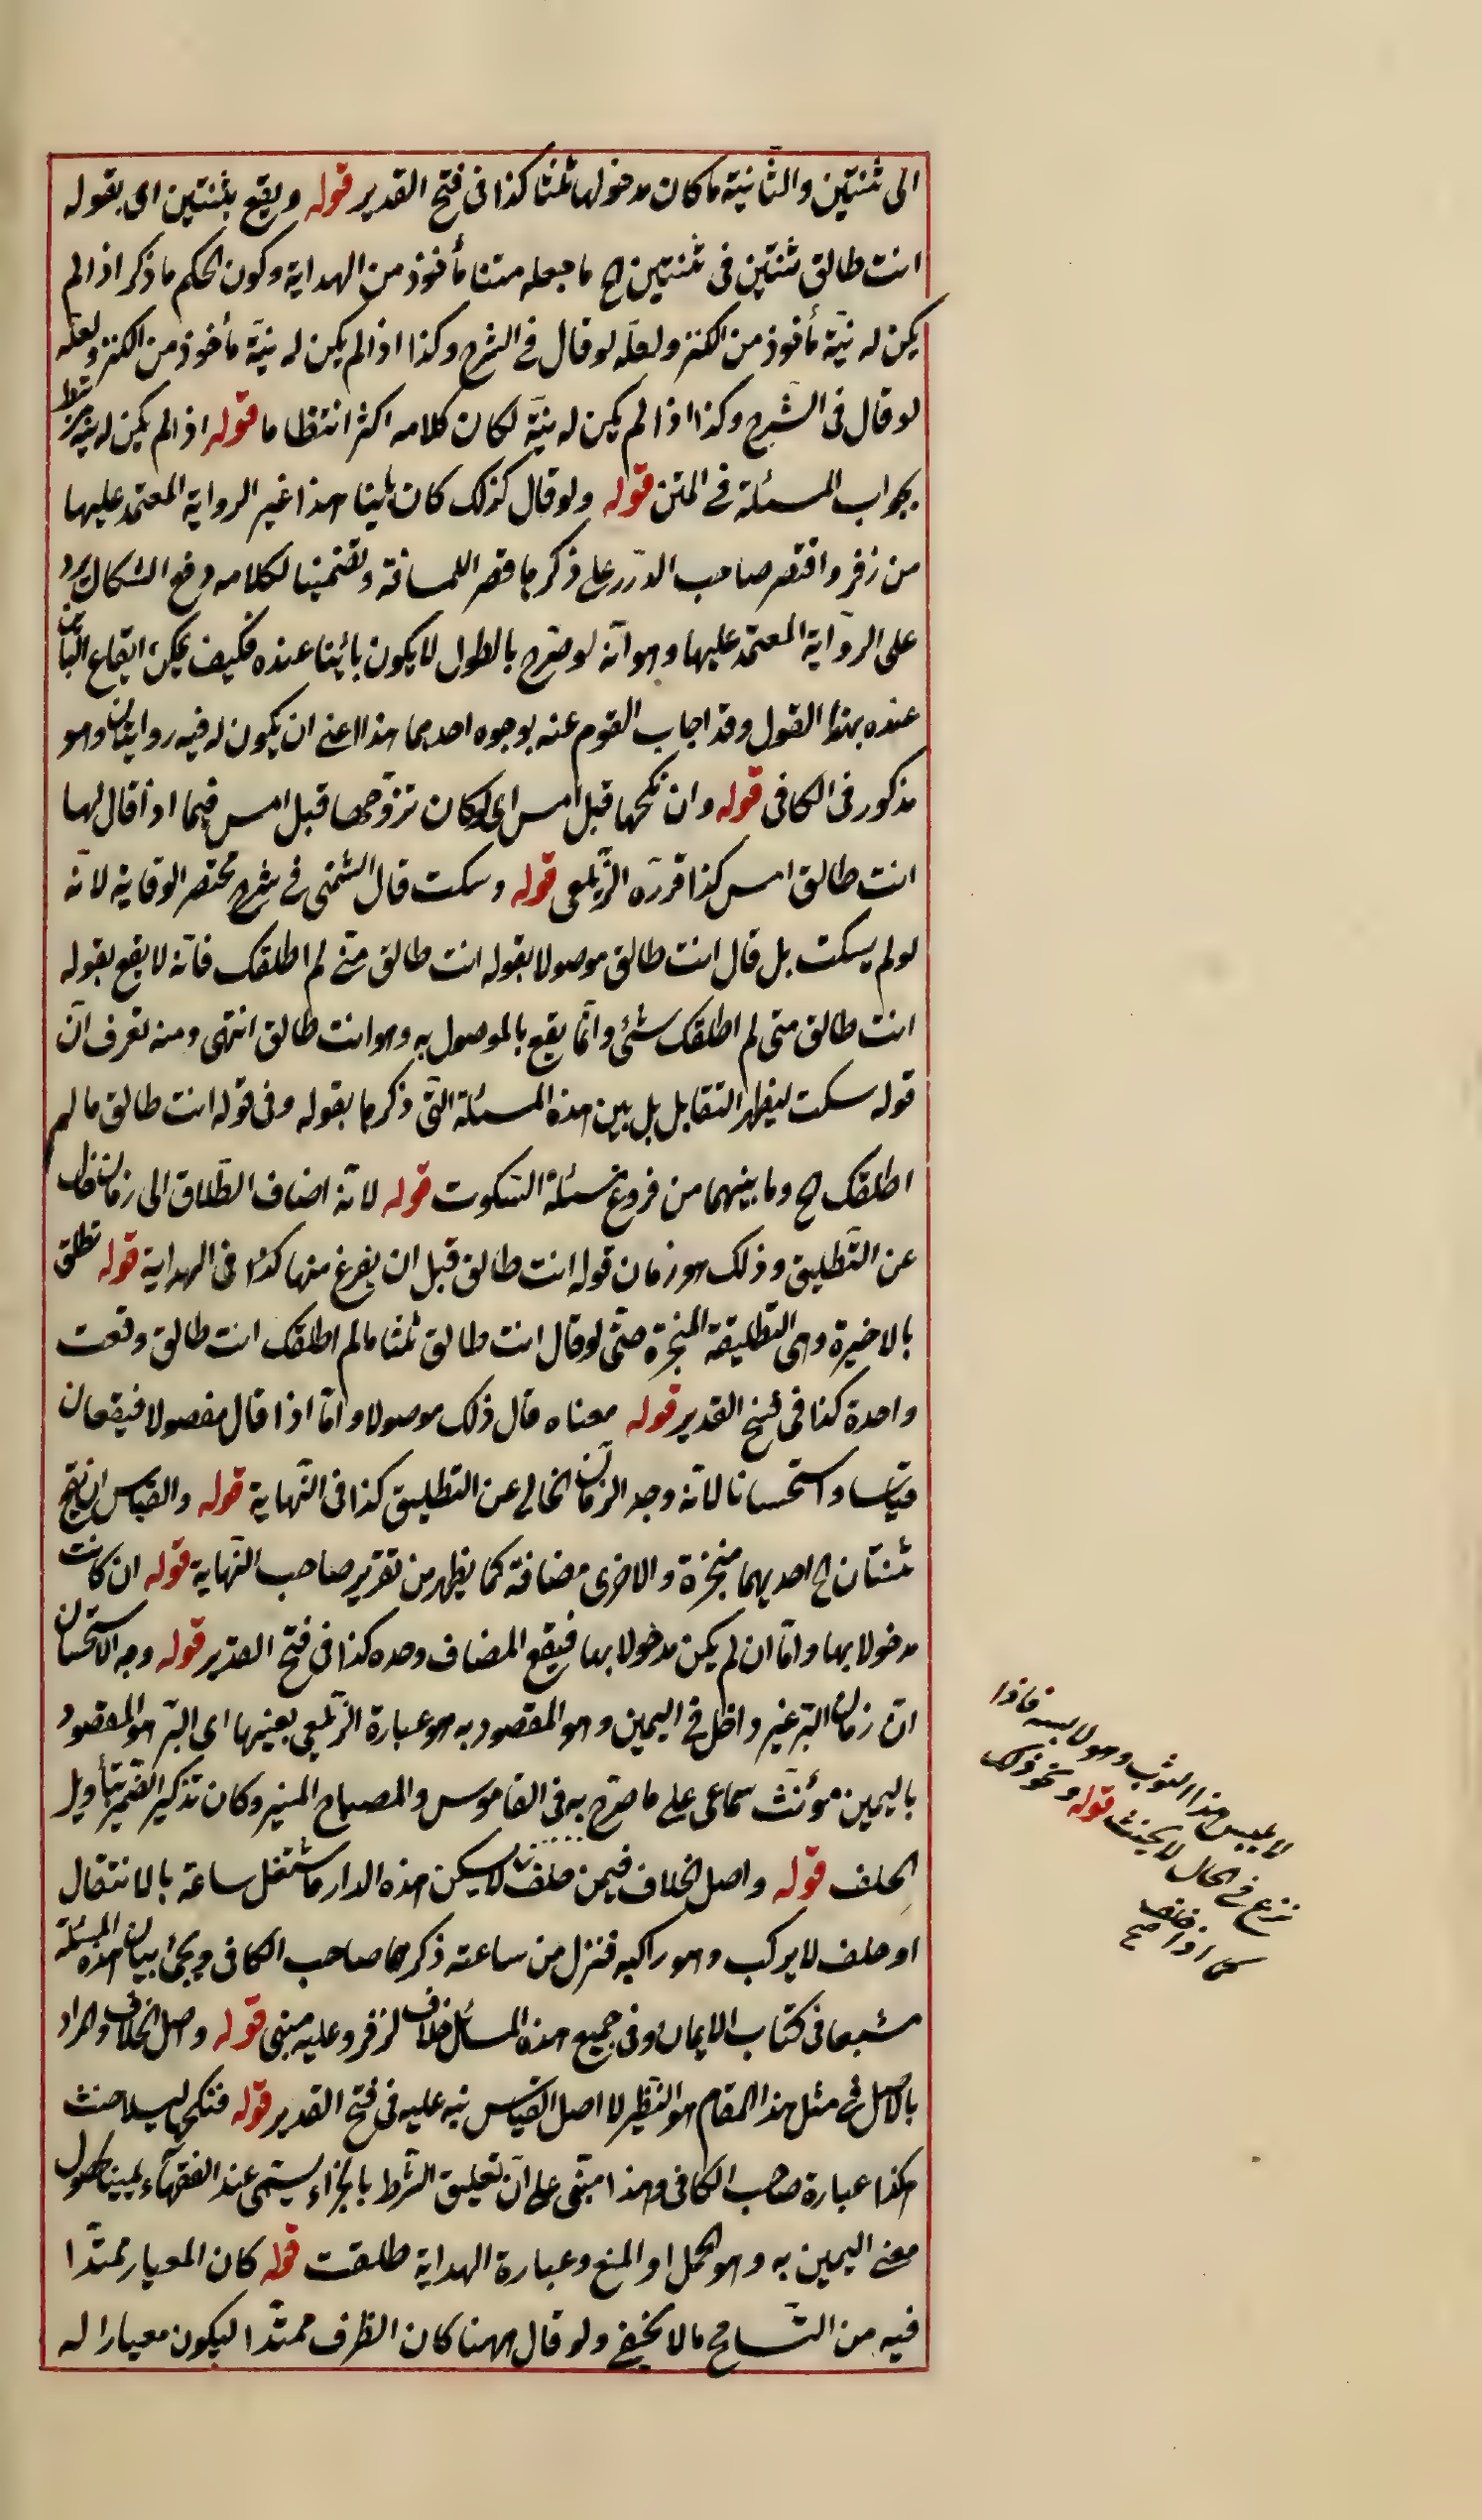 الى ثنتين والثانية ما كان مدخولها ثلثا كذا فى فتح القدير قوله ويقع بثنتين اى بقوله
انت طالق ثنتين فى ثنتين الخ ما جعله متنا مأخوذ من الهداية وكون الحكم ما ذكر اذا لم
يكن له نيّة مأخوذ من الكنز ولعلّه لو قال فى الشرح وكذا اذا لم يكن له نيّة مأخوذ من الكنز ولعلّه
لو قال فى الشرح وكذا اذا لم يكن له نيّة لكان كلامه اكثر انتظاما قوله اذا لم يكن له نيّة
بجواب المسئلة فى المتن قوله ولو قال كذلك كان بائنا هذا غير الرواية المعتمد عليها
من زفر واقتصر صاحب الدّرر على ذكرها قصر اللمسافة وتضمينا لكلامه دفع اشكال يرد
على الرّواية المعتمد عليها وهو انّه لو صرّح بالطول لا يكون بائنا عنده فكيف يمكن ايقاع البائن
عنده بهذا القول وقد اجاب القوم عنه بوجوه احديها هذا اعنى ان يكون له فيه روايتان وهو
مذكور فى الكافى قوله وان نكحها قبل امس اى لو كان تزوّجها قبل امس فيما اذا قال لها
انت طالق امس كذا قرّره الزّيلعى قوله وسكت قال الشمنى فى شرح مختصر الوقاية لانّه
لو لم يسكت بل قال انت طالق موصولا بقوله انت طالق متى لم اطلقك فانّه لا يقع بقوله
انت طالق متى لم اطلقك شئ وانّما يقع بالموصول به وهو انت طالق انتهى ومنه تعرف انّ
قوله سكت ليظهر التقابل بل بين هذه المسئلة التّى ذكرها بقوله وفى قوله انت طالق ما لم
اطلقك الخ وما بينهما من فروع مسئلة السّكوت قوله لانّه اضاف الطّلاق الى زمان خال
عن التّطليق وذلك هو زمان قوله انت طالق قبل ان يفرغ منها كذا فى الهداية قوله تطلق
بالاخيرة وهى التطليقة المنجزة حتّى لو قال انت طالق ثلثا ما لم اطلقك انت طالق وقعت
واحدة كذا فى فتح القدير قوله معناه قال ذلك موصولا وامّا اذا قال مفصولا فيقعان
قياسا واستحسانا لانّه وجد الزّمان الخالى عن التطليق كذا فى النّهاية قوله والقياس ان يقع
ثنتان الخ احديهما منجزة والاخرى مضافة كما يظهر من تقرير صاحب النّهاية قوله ان كانت
مدخولا بها وامّا ان لم يكن مدخولا بها فيقع المضاف وحده كذا فى فتح القدير قوله وجه الاستحسان
انّ زمان البرّ غير داخل فى اليمين وهو المقصود به هو عبارة الزّيلعى بعينها اى البرّ هو المقصود
باليمين مؤنّث سماعى على ما صرّح به فى القاموس والمصباح المنير وكان تذكير الضّمير بتأويل
الحلف قوله واصل الخلاف فيمن حلف لا يسكن هذه الدار فاشتغل ساعة بالانتقال
او حلف لا يركب وهو راكبه فنزل من ساعته ذكرها صاحب الكافى ويجئ بيان هذه المسئلة
مشبعا فى كتاب الايمان وفى جميع هذه المسائل خلاف لزفر وعليه مبنى قوله واصل الخلاف والمراد
بالاصل فى مثل هذا المقام هو النّظير لا اصل القياس نبه عليه فى فتح القدير قوله فنكحها ليلا حنث
هكذا عبارة صاحب الكافى وهذا مبنى على انّ تعليق الشّرط بالجزاء يسمّى عند الفقهاء يمينا لحصول
معنى اليمين به وهو الحمل او المنع وعبارة الهداية طلقت قوله كان المعيار ممتدّا
فيه من التّسامح ما لا يخفى ولو قال ههنا كان الظرف ممتدّا ليكون معيارا له
لا يلبس هذا الثوب وهو لابسه فاذا
نزع فى الحال لا يحنث قوله ونحو ذلك
كما اذا حلف صح